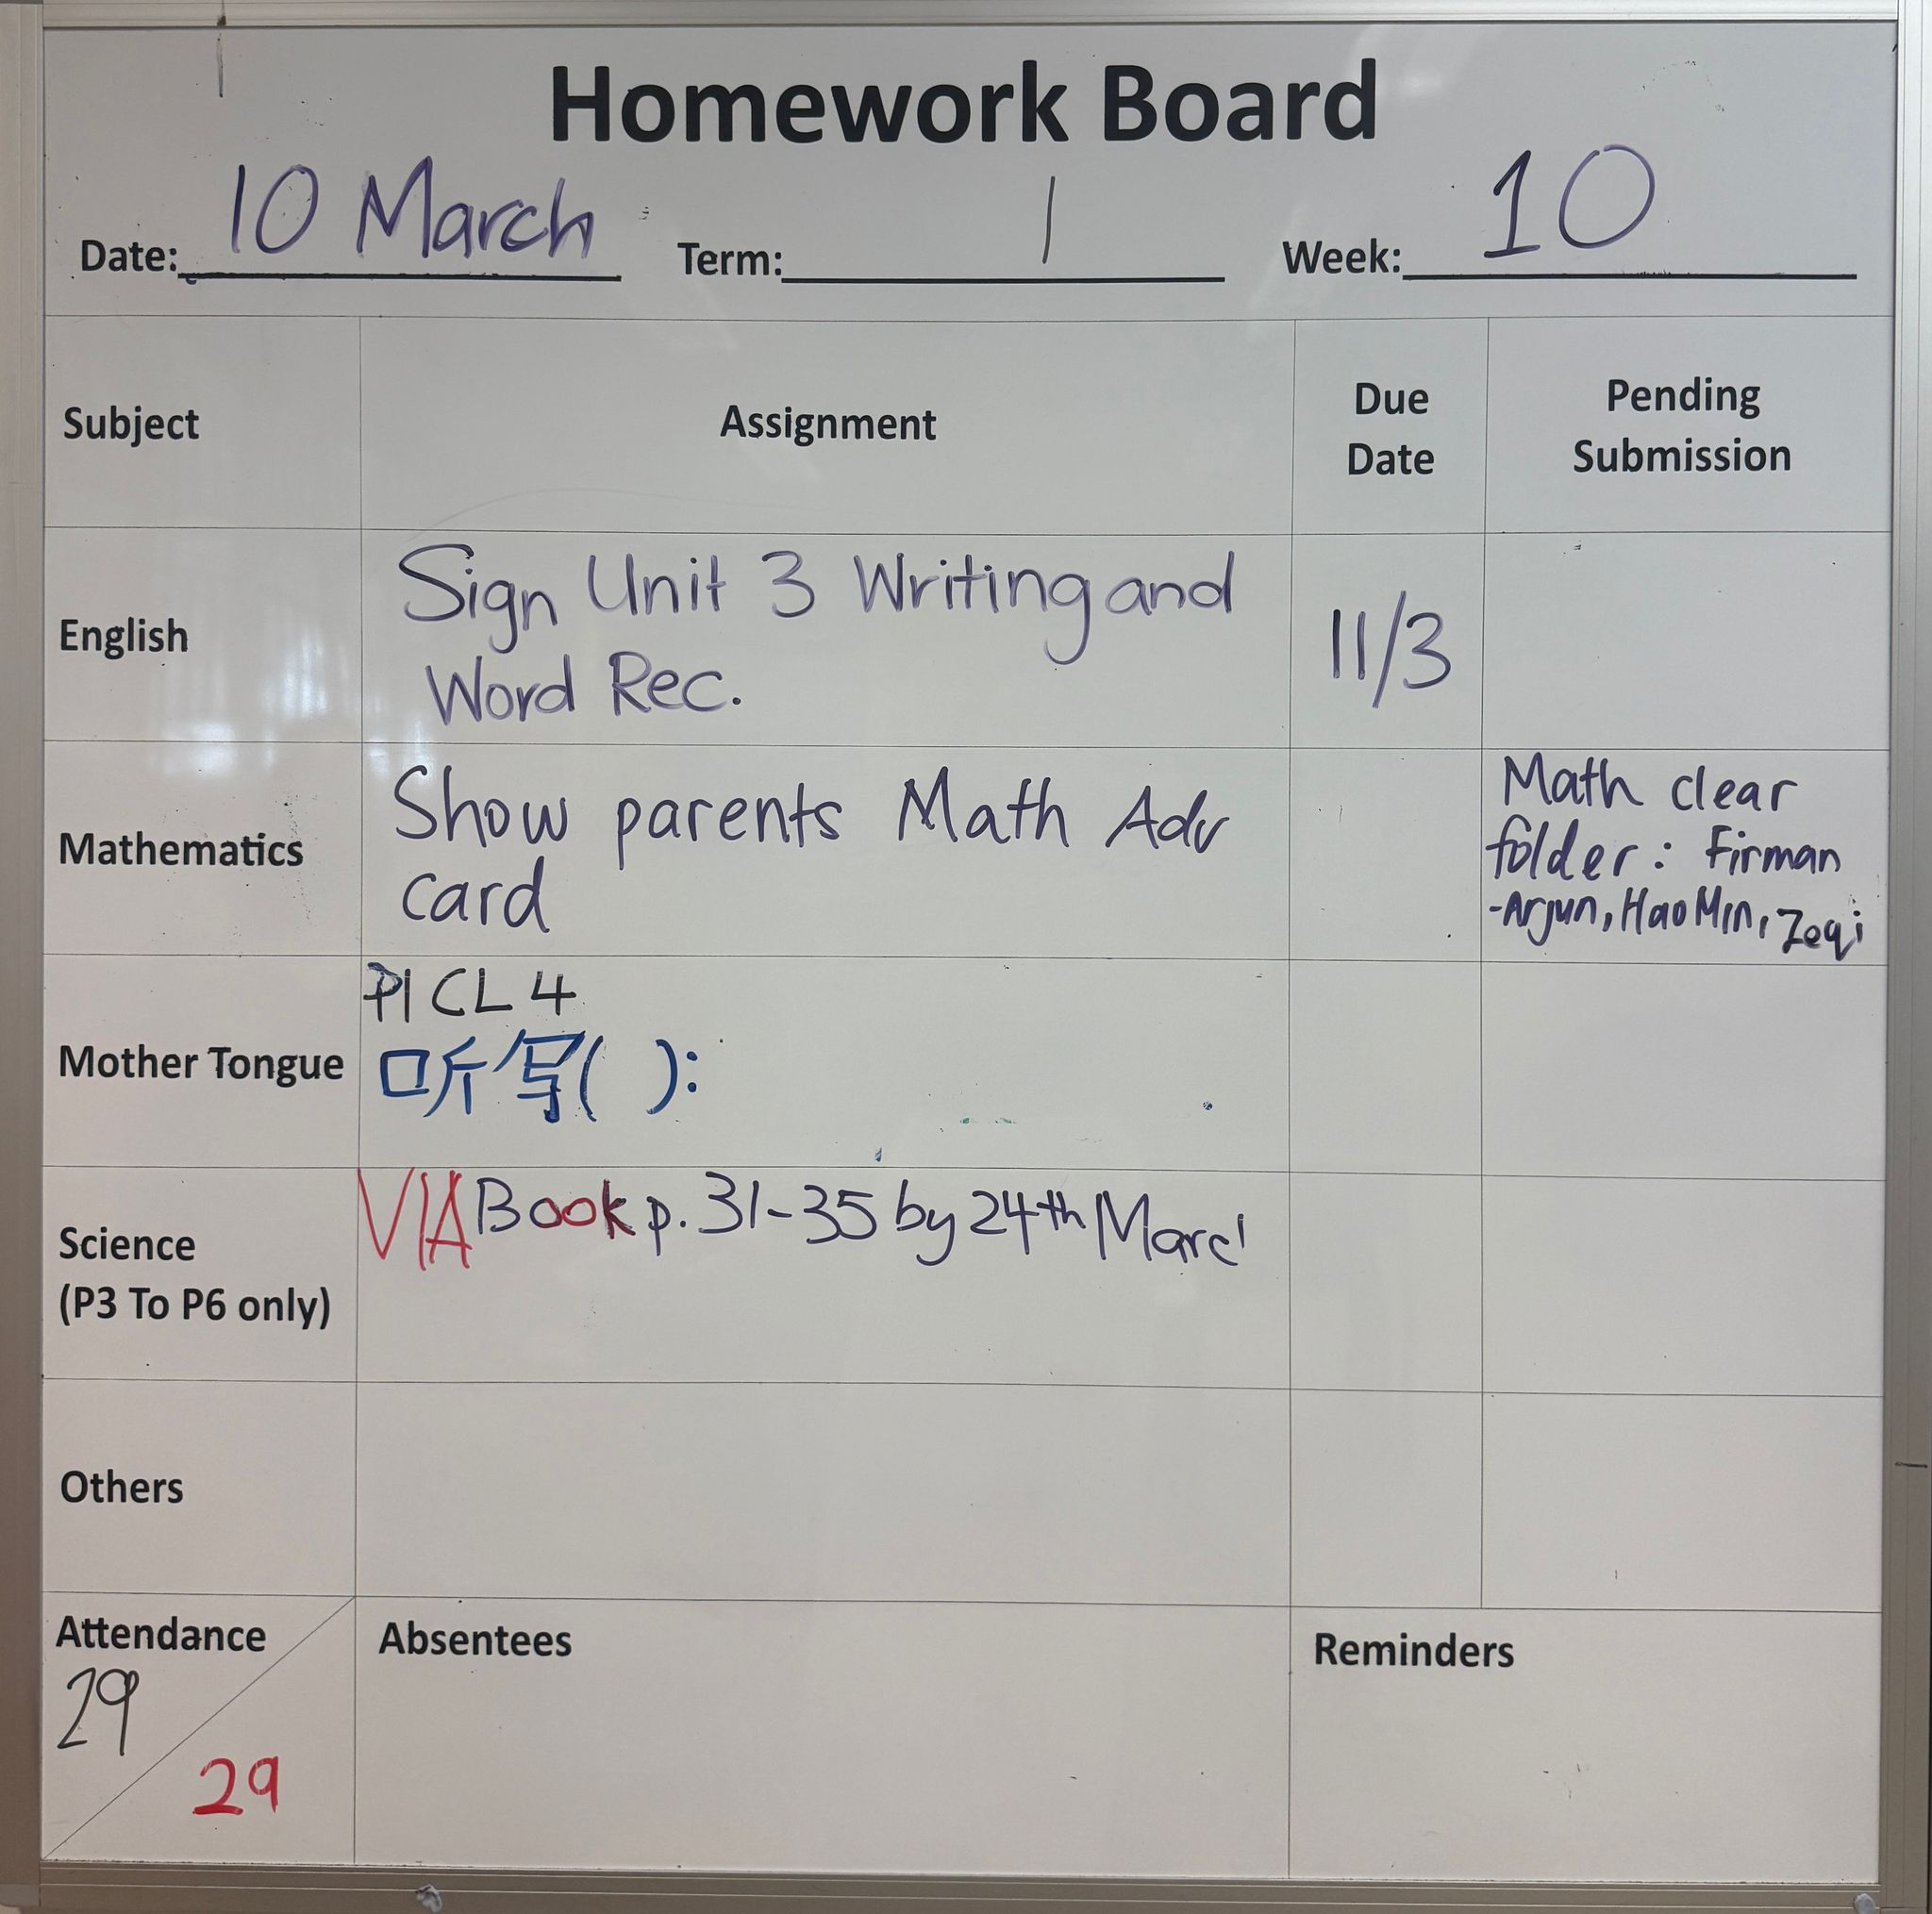 Homework Board
Date: 10 March Term: 1 Week: 10
Subject Assignment Due Date Pending Submission
English
Sign Unit 3 Writing and
Word Rec.
11/3
Mathematics
Show parents Math Adv
card
Math clear
folder: Firman
-Arjun, Hao Min, Zeqi
Mother Tongue
P1 CL 4
听写( ):
Science
(P3 To P6 only)
VIA Book p. 31-35 by 24th March
Others
Attendance
29
29
Absentees
Reminders